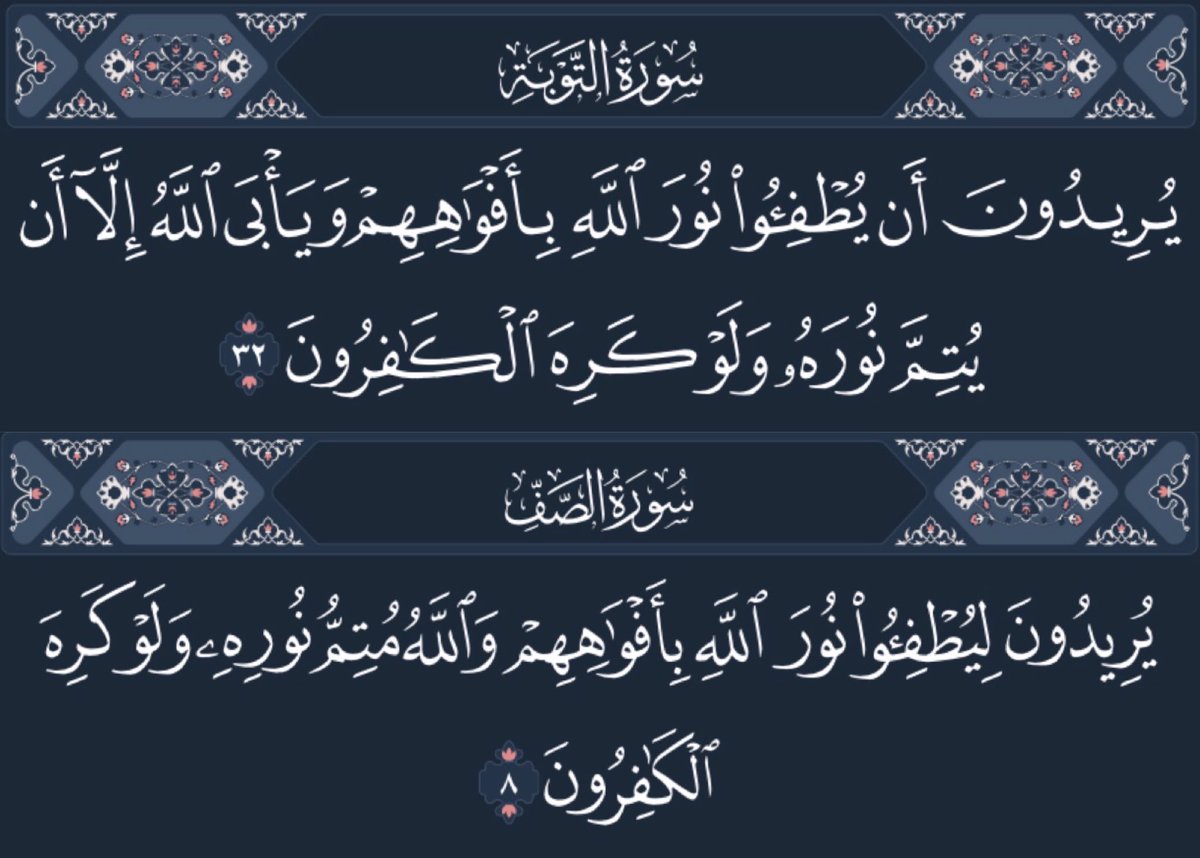 سُورَةُ التَّوۡبَةِ
يُرِيدُونَ أَن يُطۡفِـُٔواْ نُورَ ٱللَّهِ بِأَفۡوَٰهِهِمۡ وَيَأۡبَى ٱللَّهُ إِلَّآ أَن
يُتِمَّ نُورَهُۥ وَلَوۡ كَرِهَ ٱلۡكَٰفِرُونَ ٣٢
سُورَةُ الصَّفِّ
يُرِيدُونَ لِيُطۡفِـُٔواْ نُورَ ٱللَّهِ بِأَفۡوَٰهِهِمۡ وَٱللَّهُ مُتِمُّ نُورِهِۦ وَلَوۡ كَرِهَ
ٱلۡكَٰفِرُونَ ٨